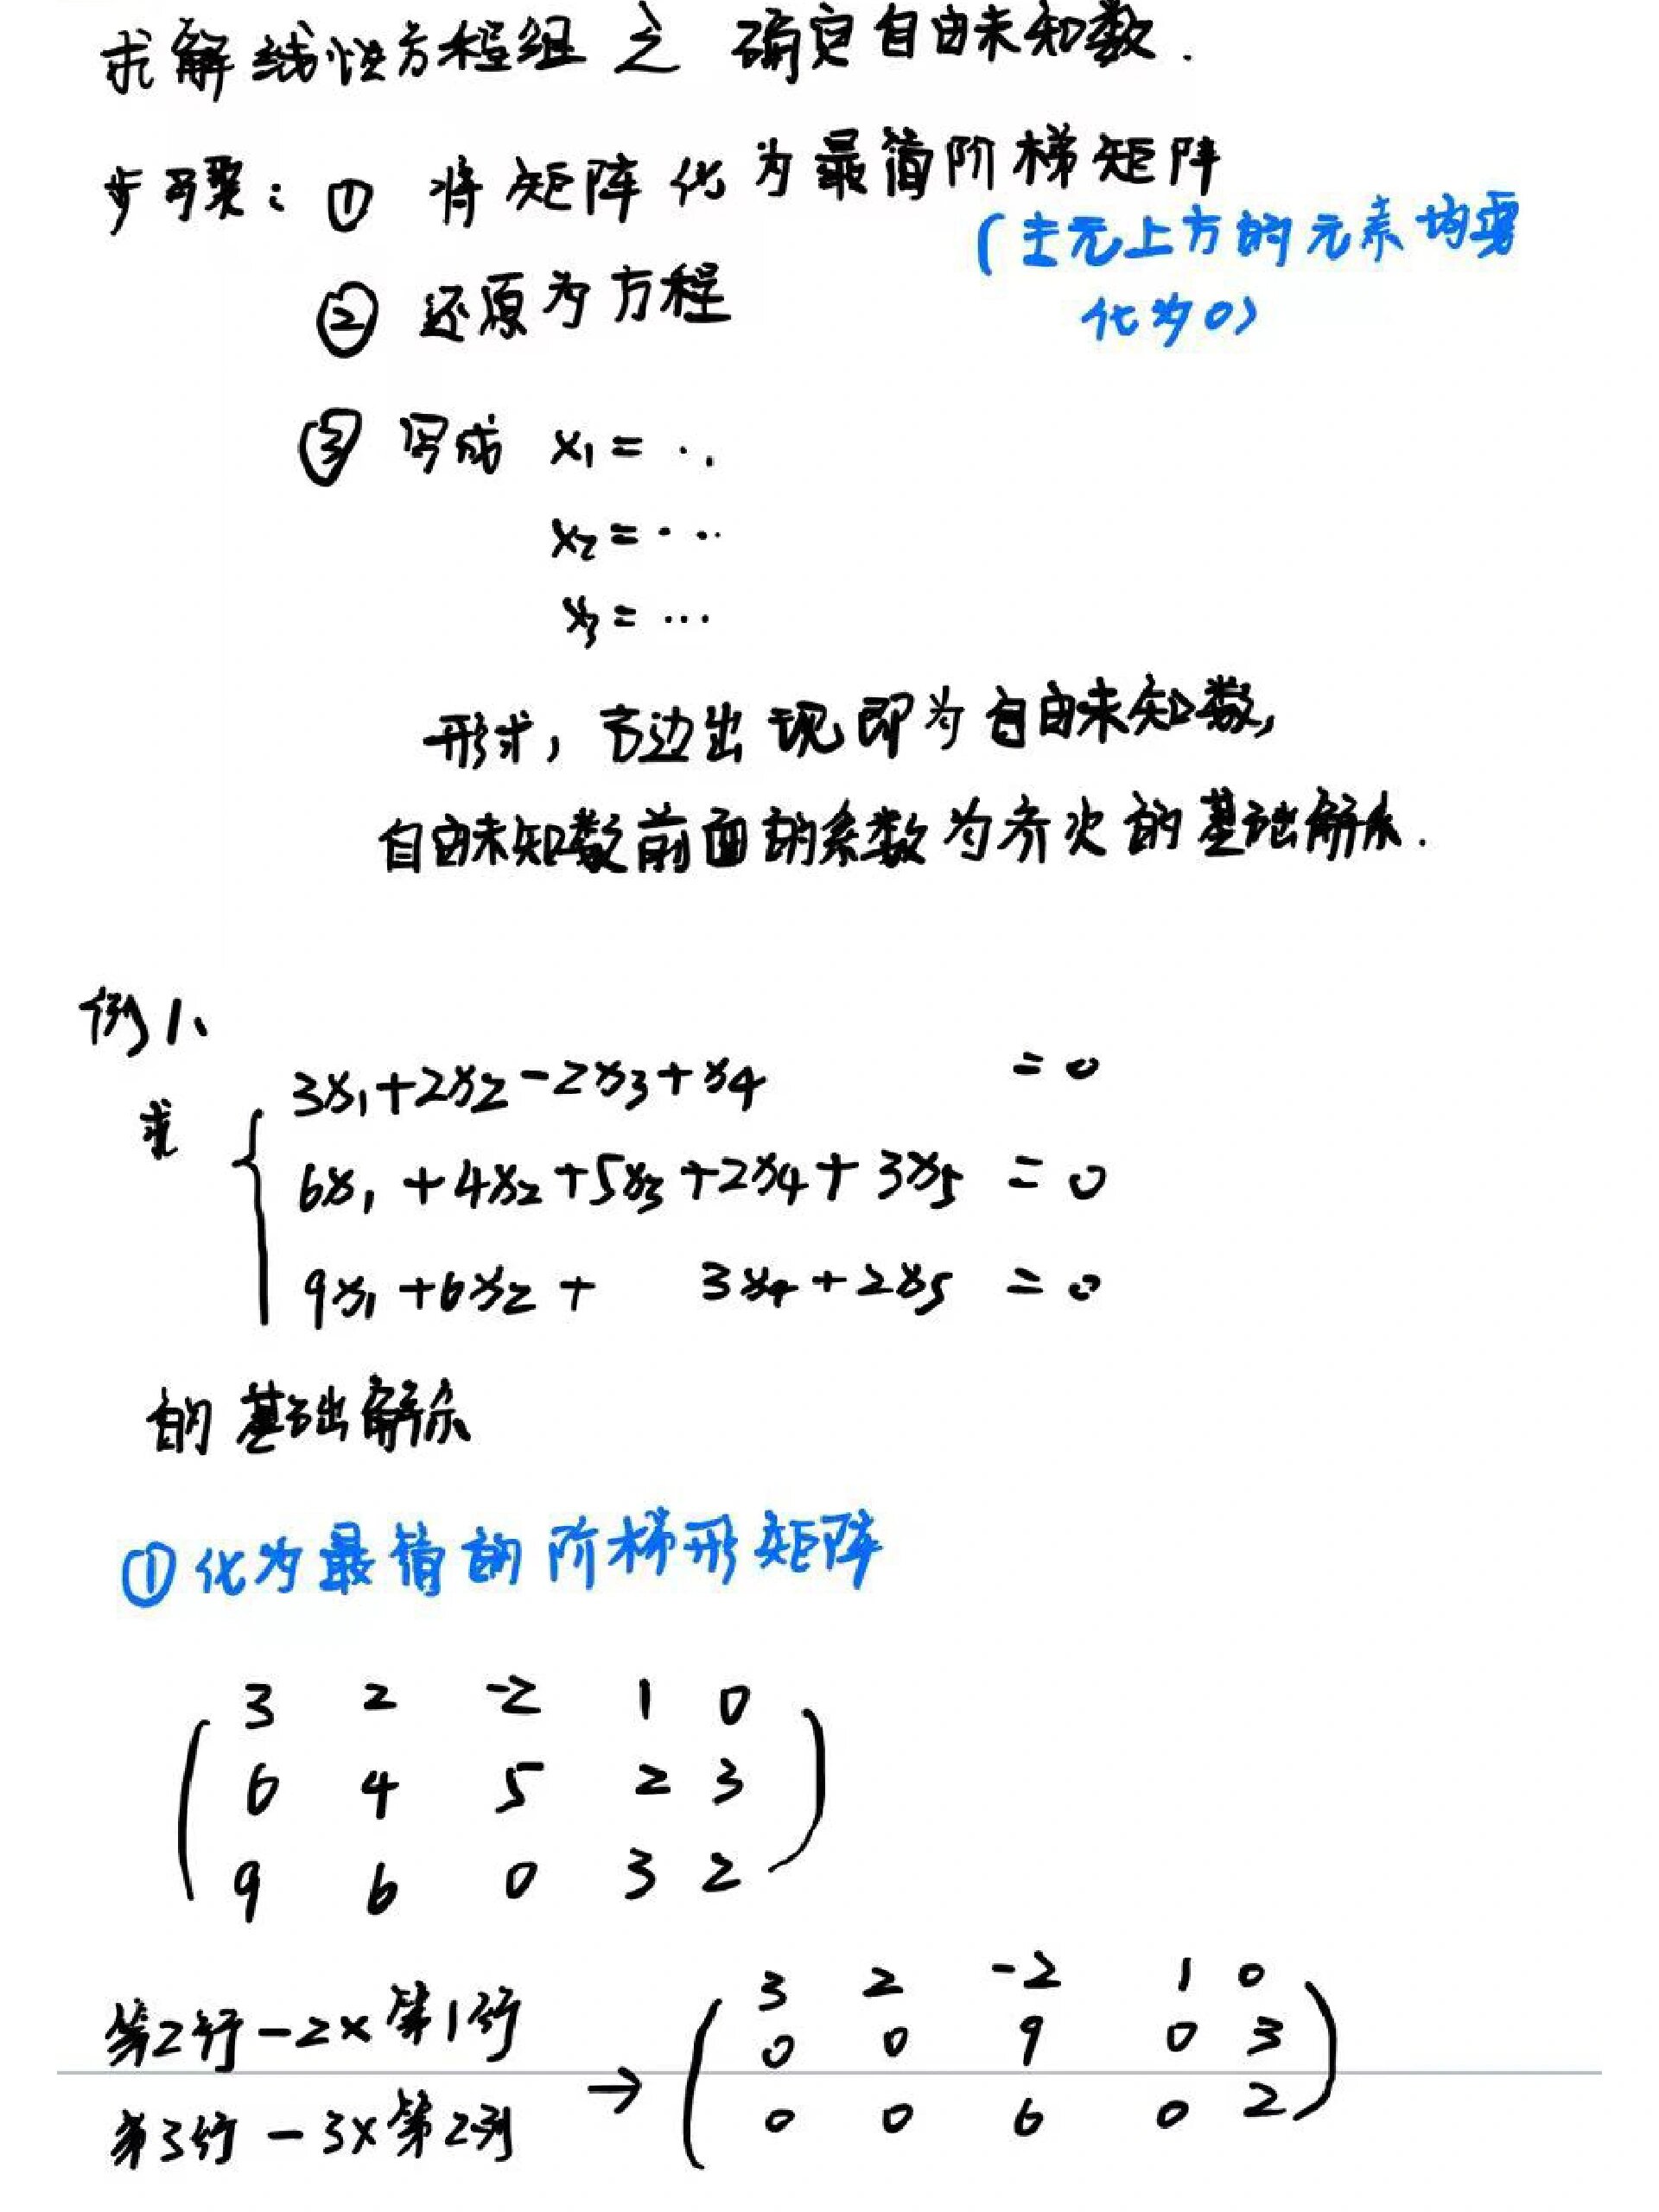 求解线性方程组之 确定自由未知数.
步骤: ① 将矩阵化为最简阶梯矩阵
(主元上方的元素均需
化为0)
② 还原为方程
③ 写成 x₁ = ..
x₂ = ...
x₃ = ...
形式, 右边出现即为自由未知数,
自由未知数前面的系数为齐次的基础解系.
例1、
求 { 3x₁+2x₂-2x₃+x₄ = 0
6x₁+4x₂+5x₃+2x₄+3x₅ = 0
9x₁+6x₂+ 3x₄+2x₅ = 0
的基础解系
①化为最简的阶梯形矩阵
3 2 -2 1 0
6 4 5 2 3
9 6 0 3 2
第2行-2×第1行
第3行-3×第2列
→
3 2 -2 1 0
0 0 9 0 3
0 0 6 0 2